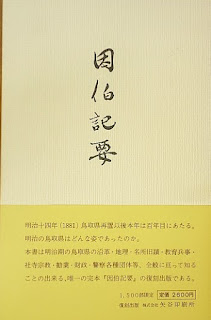 因伯記要
明治十四年(1881)鳥取県再置以後本年は百年目にあたる。
明治の鳥取県はどんな姿であったのか。
本書は明治期の鳥取県の沿革・地理・名所旧蹟・教育兵事・
社寺宗教・勧業・財政・警察各種団体等、全般に亘って知る
ことの出来る、唯一の完本『因伯記要』の復刻出版である。
1,500部限定 定価 2500円
復刻出版 株式会社 矢谷印刷所